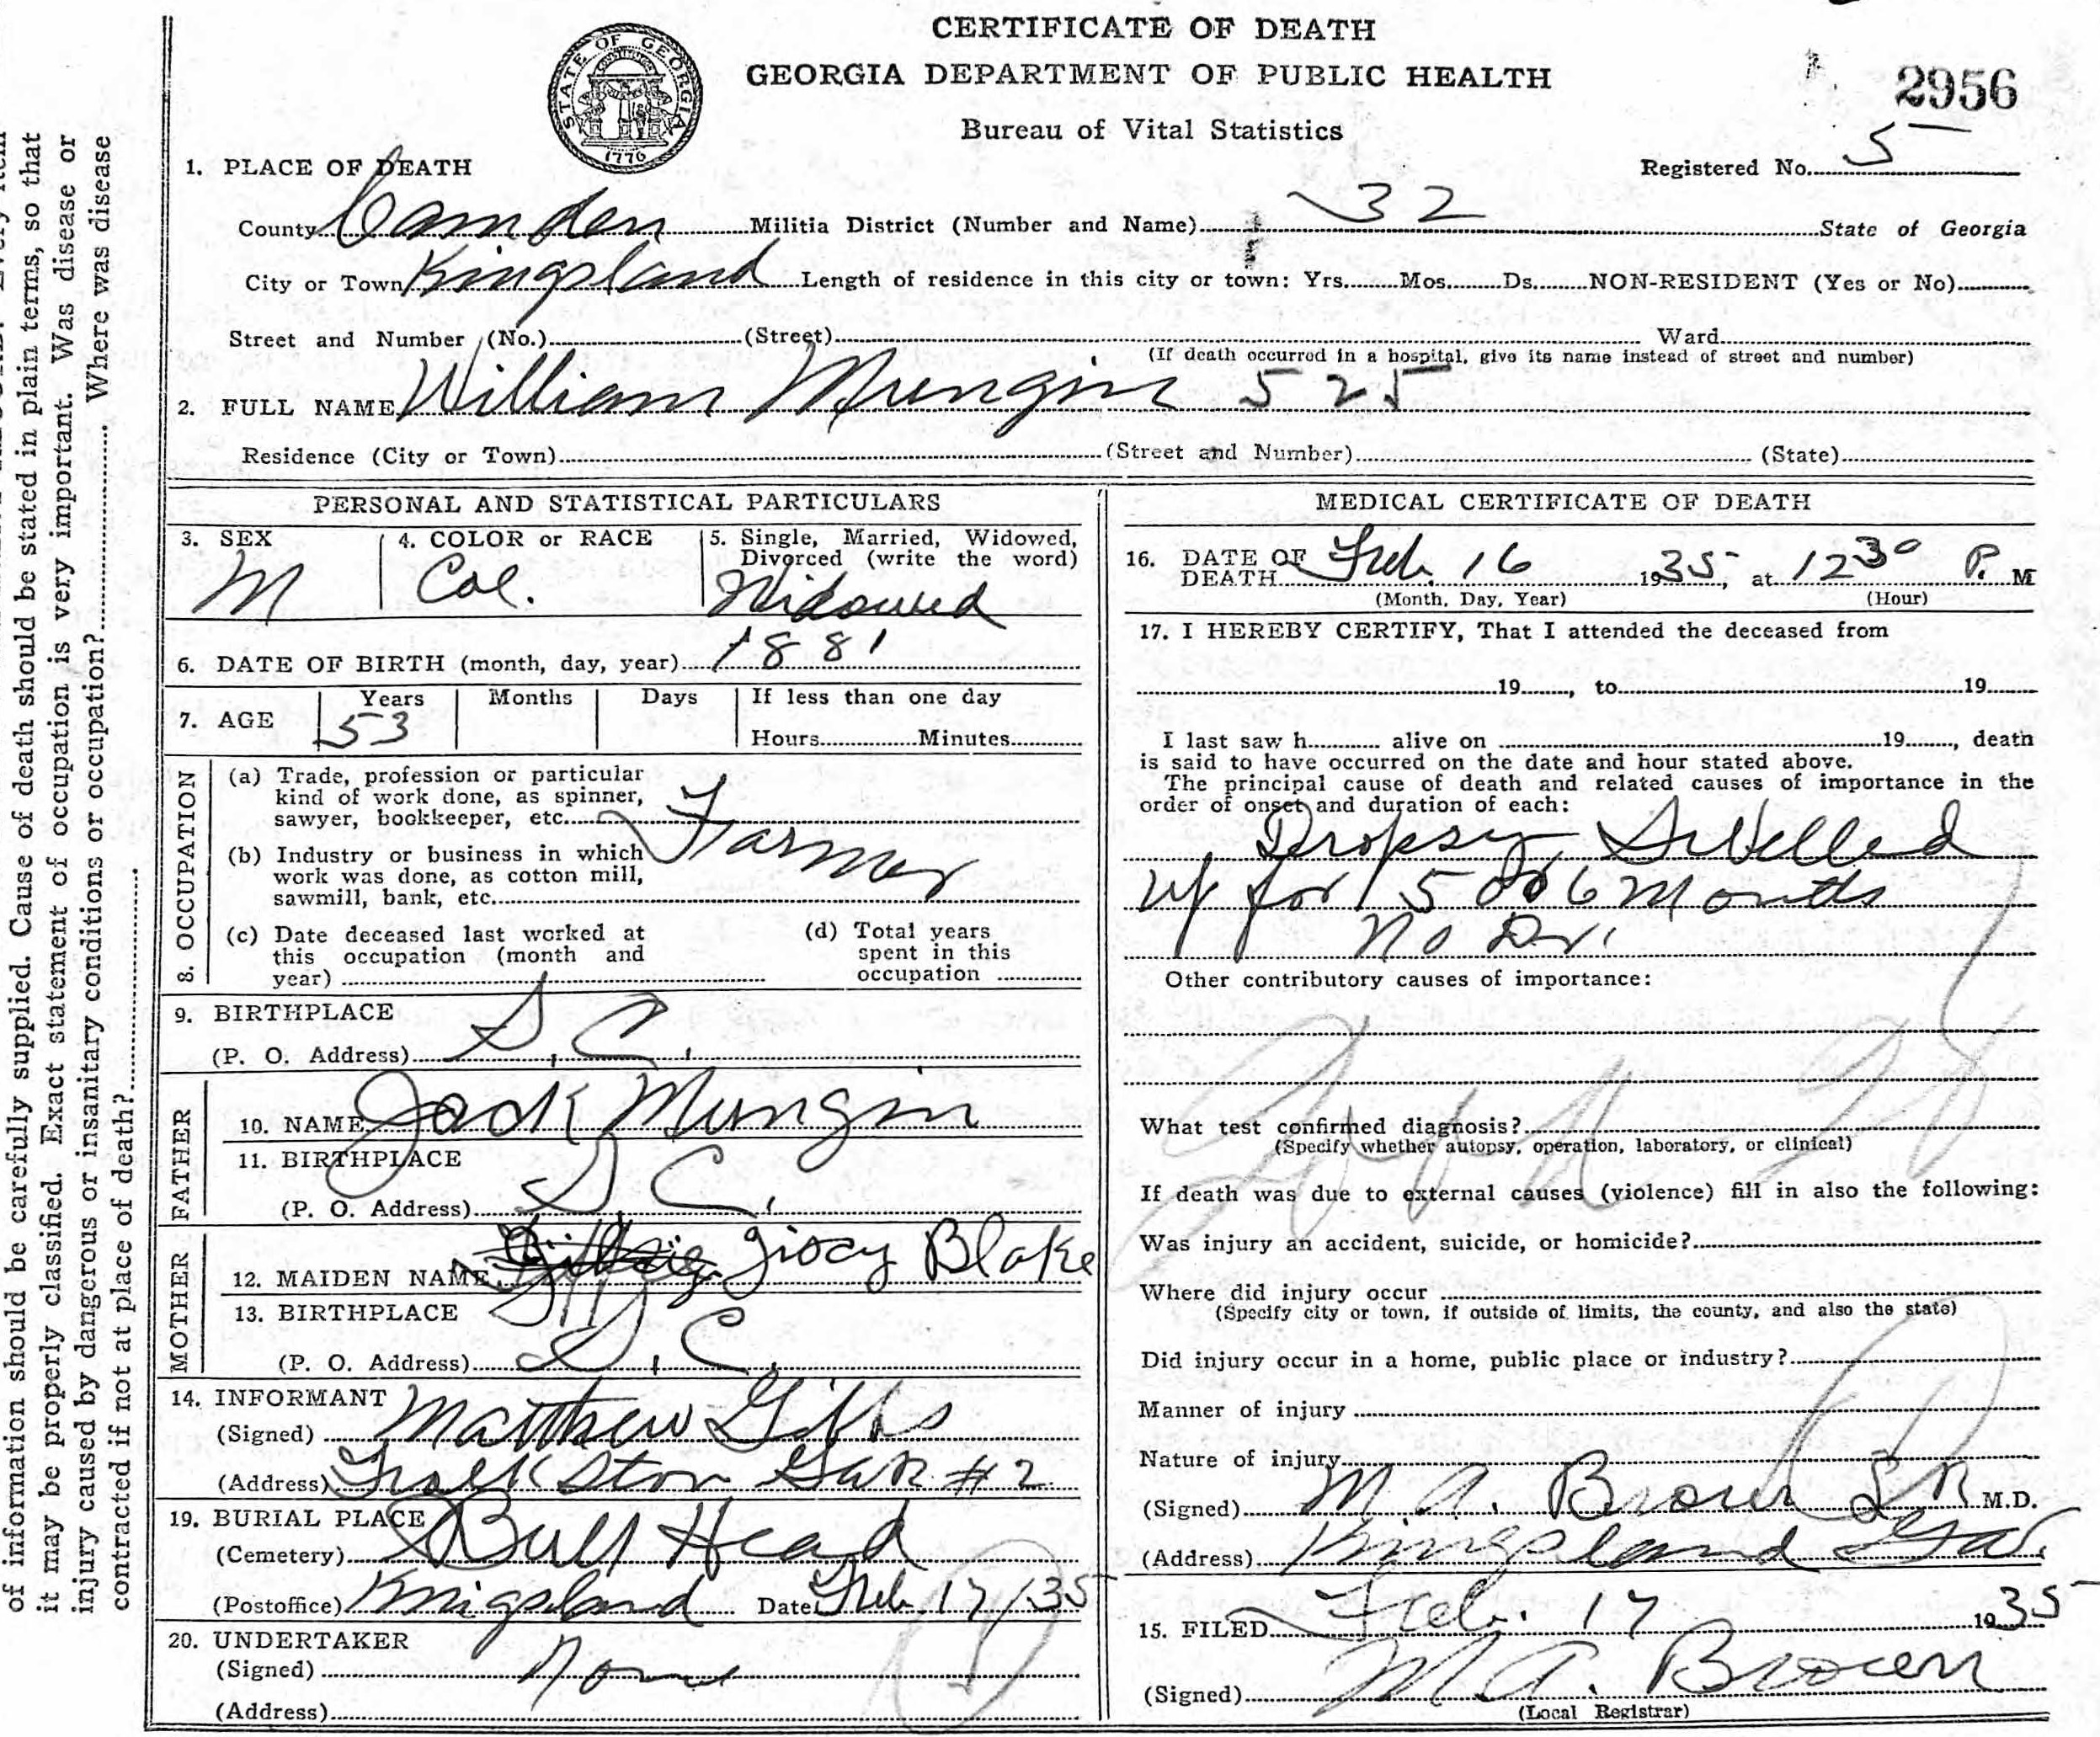 CERTIFICATE OF DEATH
GEORGIA DEPARTMENT OF PUBLIC HEALTH
Bureau of Vital Statistics
2956
STATE OF GEORGIA
CONSTITUTION
1776
Registered No. 5
1. PLACE OF DEATH
County Camden Militia District (Number and Name) 32 State of Georgia
City or Town Kingsland Length of residence in this city or town: Yrs. Mos. Ds. NON-RESIDENT (Yes or No)
Street and Number (No.) (Street) Ward
(If death occurred in a hospital, give its name instead of street and number)
2. FULL NAME William Mungin 525
Residence (City or Town) (Street and Number) (State)
PERSONAL AND STATISTICAL PARTICULARS
3. SEX M
4. COLOR or RACE Col.
5. Single, Married, Widowed,
Divorced (write the word)
Widowed
6. DATE OF BIRTH (month, day, year) 1881
7. AGE Years 53 Months Days If less than one day
Hours Minutes
8. OCCUPATION
(a) Trade, profession or particular
kind of work done, as spinner,
sawyer, bookkeeper, etc.
Farmer
(b) Industry or business in which
work was done, as cotton mill,
sawmill, bank, etc.
(c) Date deceased last worked at
this occupation (month and
year)
(d) Total years
spent in this
occupation
9. BIRTHPLACE
(P. O. Address) S. C.
FATHER
10. NAME Jack Mungin
11. BIRTHPLACE
(P. O. Address) S C.
MOTHER
12. MAIDEN NAME Blake
13. BIRTHPLACE
(P. O. Address) S. C.
14. INFORMANT
(Signed) Matthew Gibbs
(Address) #2
19. BURIAL PLACE
(Cemetery) Bull Head
(Postoffice) Kingsland Date Feb 17/35
20. UNDERTAKER
(Signed) None
(Address)
MEDICAL CERTIFICATE OF DEATH
16. DATE OF
DEATH Feb. 16 1935, at 12 30 P. M
(Month, Day, Year) (Hour)
17. I HEREBY CERTIFY, That I attended the deceased from
19 , to 19
I last saw h alive on 19 , death
is said to have occurred on the date and hour stated above.
The principal cause of death and related causes of importance in the
order of onset and duration of each:
Dropsy Swelled
up for 5 or 6 months
No Dr.
Other contributory causes of importance:
What test confirmed diagnosis?
(Specify whether autopsy, operation, laboratory, or clinical)
If death was due to external causes (violence) fill in also the following:
Was injury an accident, suicide, or homicide?
Where did injury occur
(Specify city or town, if outside of limits, the county, and also the state)
Did injury occur in a home, public place or industry?
Manner of injury
Nature of injury
(Signed) M. A. Brown M.D.
(Address) Kingsland Ga.
15. FILED Feb. 17 1935
(Signed) M A. Brown
(Local Registrar)
of information should be carefully supplied. Cause of death should be stated in plain terms, so that
it may be properly classified. Exact statement of occupation is very important. Was disease or
injury caused by dangerous or insanitary conditions or occupation? Where was disease
contracted if not at place of death?